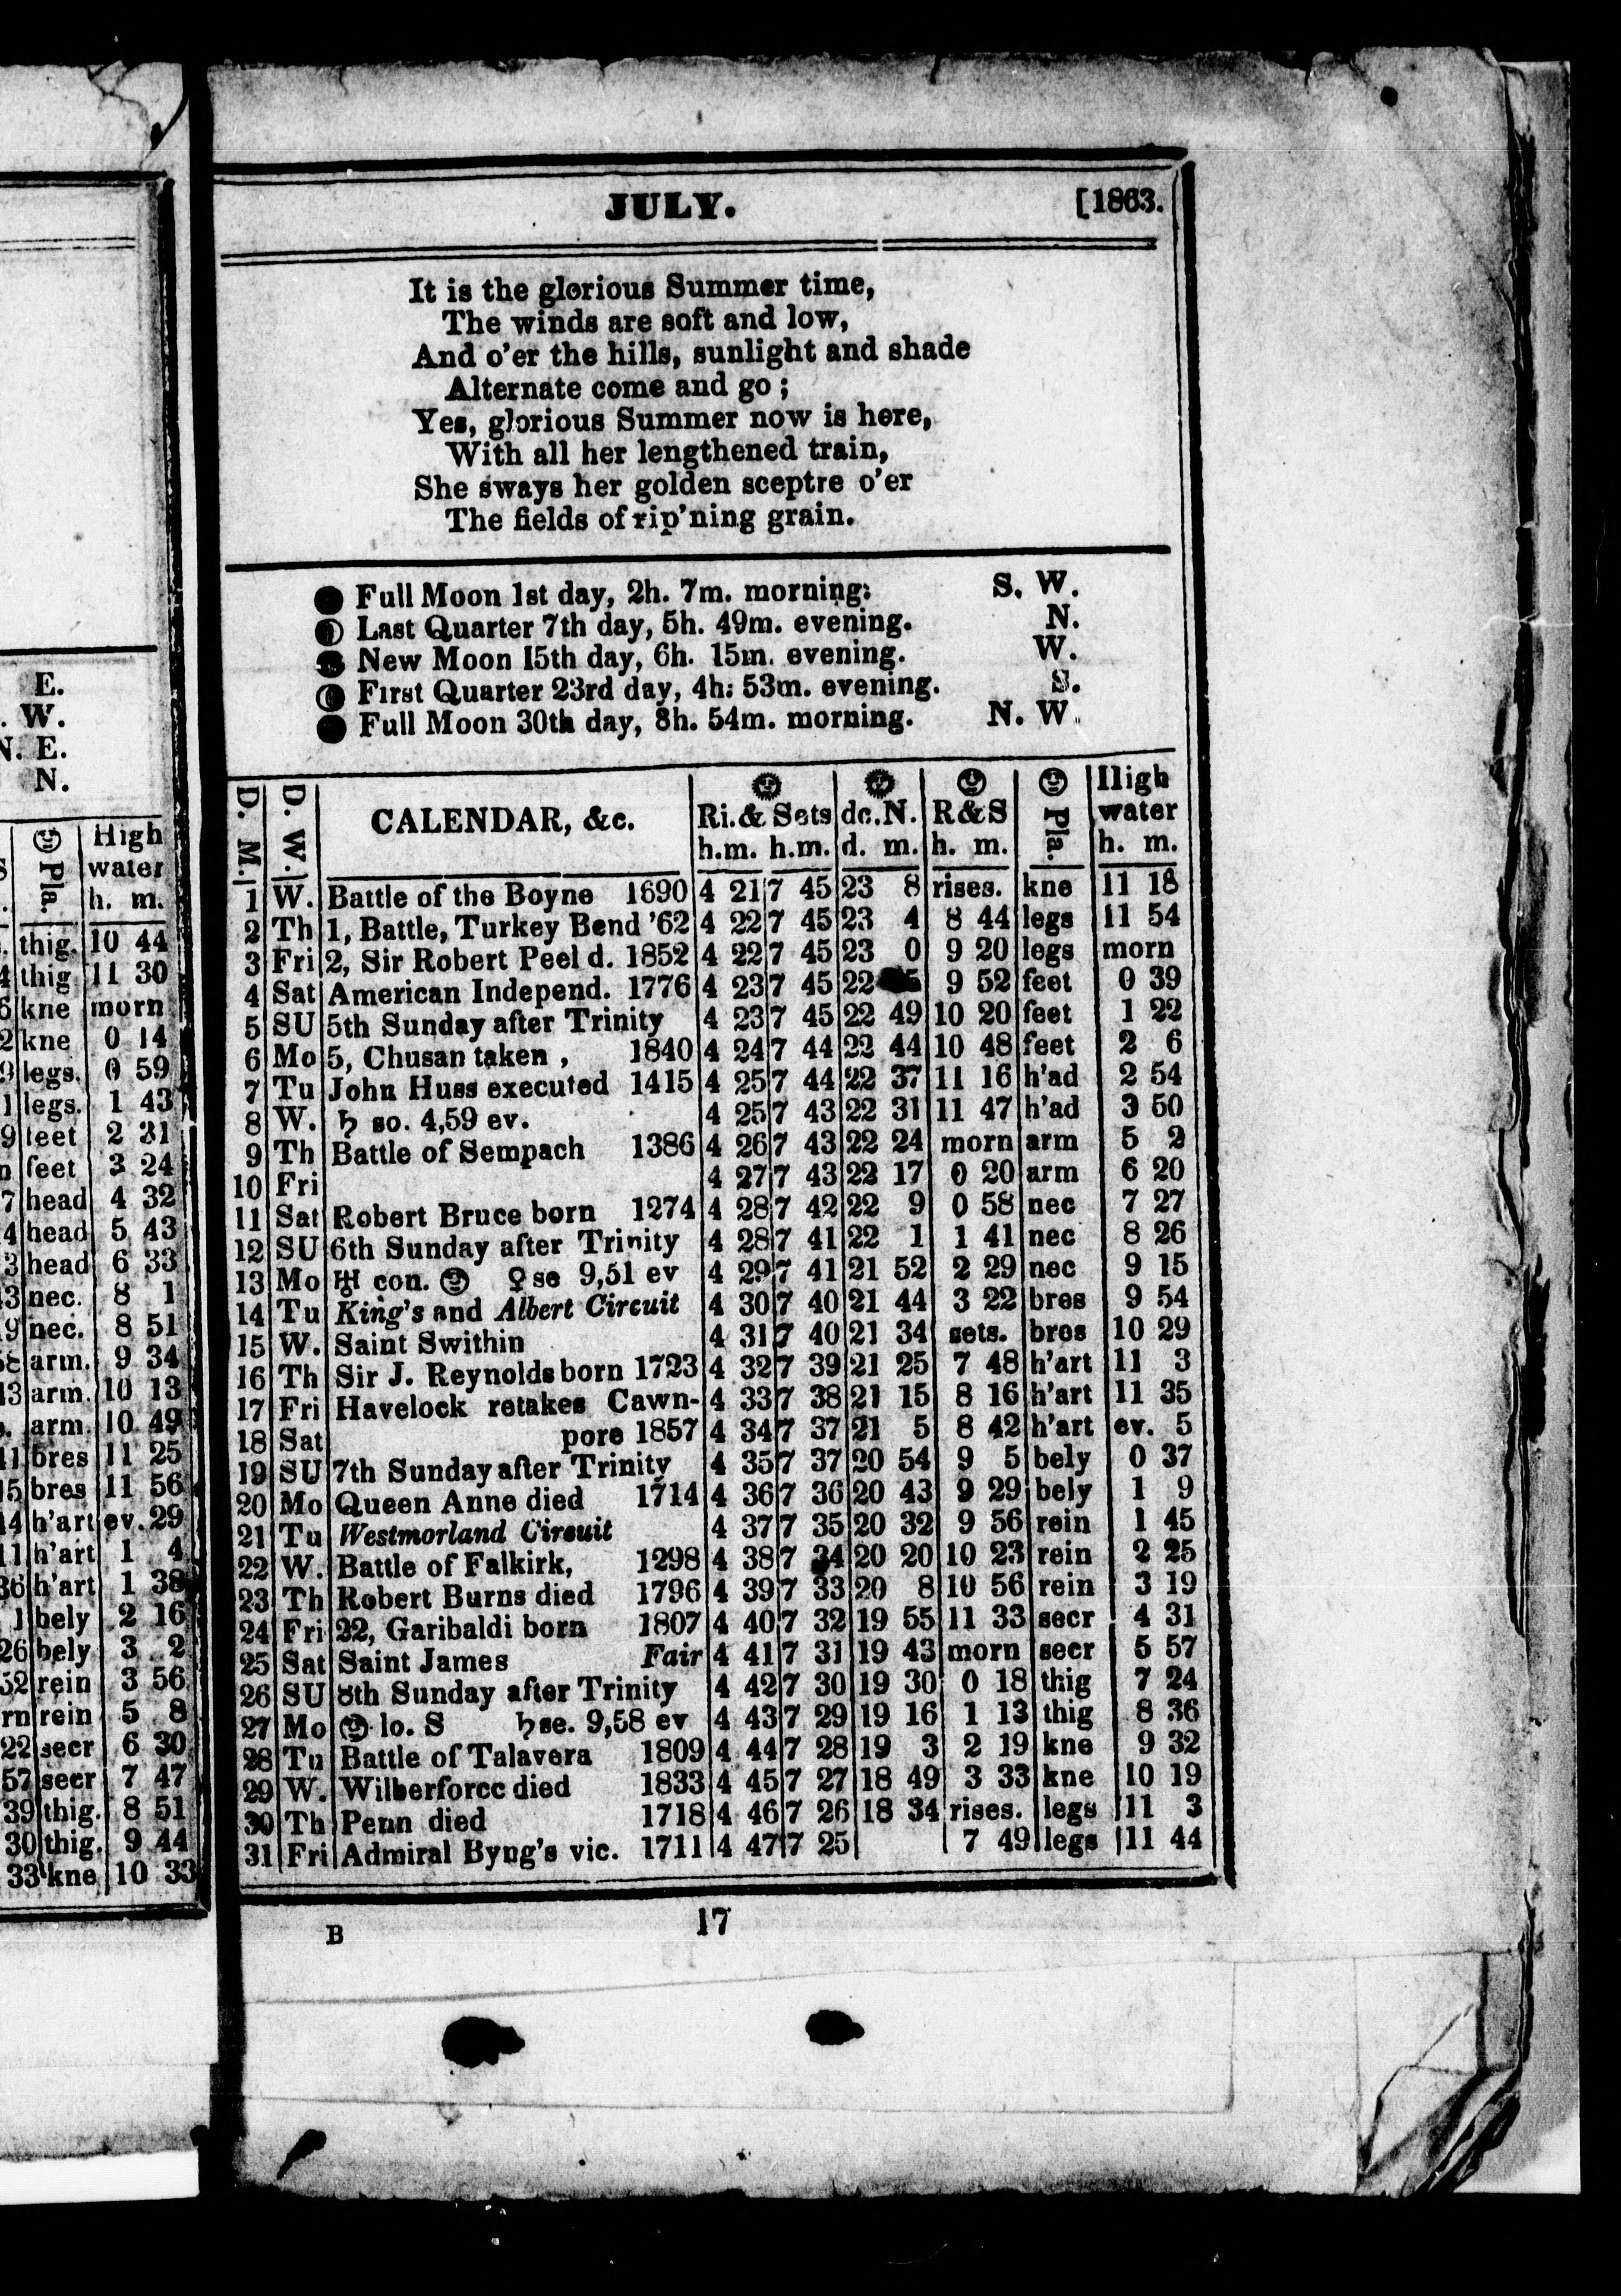 E.
. W.
N. E.
N.
Pla.
High
water
h. m.
thig. 10 44
4 thig 11 30
6 kne morn
2 kne 0 14
9 legs. 0 59
1 legs. 1 43
9 feet 2 31
n feet 3 24
7 head 4 32
4 head 5 43
3 head 6 33
3 nec. 8 1
9 nec. 8 51
arm. 9 34
13 arm. 10 13
arm. 10 49
11 bres 11 25
15 bres 11 56
14 h'art ev. 29
11 h'art 1 4
36 h'art 1 38
1 bely 2 16
26 bely 3 2
52 rein 3 56
rn rein 5 8
22 secr 6 30
57 secr 7 47
39 thig. 8 51
30 thig. 9 44
33 kne 10 33
JULY. [1863.
It is the glorious Summer time,
The winds are soft and low,
And o'er the hills, sunlight and shade
Alternate come and go ;
Yes, glorious Summer now is here,
With all her lengthened train,
She sways her golden sceptre o'er
The fields of rip'ning grain.
Full Moon 1st day, 2h. 7m. morning: S. W.
Last Quarter 7th day, 5h. 49m. evening. N.
New Moon 15th day, 6h. 15m. evening. W.
First Quarter 23rd day, 4h: 53m. evening. S.
Full Moon 30th day, 8h. 54m. morning. N. W.
D. M. D. W. CALENDAR, &c. Ri.& Sets dc.N. R&S Pla. High
water
h.m. h.m. d. m. h. m. h. m.
1 W. Battle of the Boyne 1690 4 21 7 45 23 8 rises. kne 11 18
2 Th 1, Battle, Turkey Bend '62 4 22 7 45 23 4 8 44 legs 11 54
3 Fri 2, Sir Robert Peel d. 1852 4 22 7 45 23 0 9 20 legs morn
4 Sat American Independ. 1776 4 23 7 45 22 9 52 feet 0 39
5 SU 5th Sunday after Trinity 4 23 7 45 22 49 10 20 feet 1 22
6 Mo 5, Chusan taken , 1840 4 24 7 44 22 44 10 48 feet 2 6
7 Tu John Huss executed 1415 4 25 7 44 22 37 11 16 h'ad 2 54
8 W. ♄ so. 4,59 ev. 4 25 7 43 22 31 11 47 h'ad 3 50
9 Th Battle of Sempach 1386 4 26 7 43 22 24 morn arm 5 2
10 Fri 4 27 7 43 22 17 0 20 arm 6 20
11 Sat Robert Bruce born 1274 4 28 7 42 22 9 0 58 nec 7 27
12 SU 6th Sunday after Trinity 4 28 7 41 22 1 1 41 nec 8 26
13 Mo ♅ con. ♀ se 9,51 ev 4 29 7 41 21 52 2 29 nec 9 15
14 Tu King's and Albert Circuit 4 30 7 40 21 44 3 22 bres 9 54
15 W. Saint Swithin 4 31 7 40 21 34 sets. bres 10 29
16 Th Sir J. Reynolds born 1723 4 32 7 39 21 25 7 48 h'art 11 3
17 Fri Havelock retakes Cawn- 4 33 7 38 21 15 8 16 h'art 11 35
18 Sat pore 1857 4 34 7 37 21 5 8 42 h'art ev. 5
19 SU 7th Sunday after Trinity 4 35 7 37 20 54 9 5 bely 0 37
20 Mo Queen Anne died 1714 4 36 7 36 20 43 9 29 bely 1 9
21 Tu Westmorland Circuit 4 37 7 35 20 32 9 56 rein 1 45
22 W. Battle of Falkirk, 1298 4 38 7 34 20 20 10 23 rein 2 25
23 Th Robert Burns died 1796 4 39 7 33 20 8 10 56 rein 3 19
24 Fri 22, Garibaldi born 1807 4 40 7 32 19 55 11 33 secr 4 31
25 Sat Saint James Fair 4 41 7 31 19 43 morn secr 5 57
26 SU 8th Sunday after Trinity 4 42 7 30 19 30 0 18 thig 7 24
27 Mo lo. S ♄ se. 9,58 ev 4 43 7 29 19 16 1 13 thig 8 36
28 Tu Battle of Talavera 1809 4 44 7 28 19 3 2 19 kne 9 32
29 W. Wilberforce died 1833 4 45 7 27 18 49 3 33 kne 10 19
30 Th Penn died 1718 4 46 7 26 18 34 rises. legs 11 3
31 Fri Admiral Byng's vic. 1711 4 47 7 25 7 49 legs 11 44
B 17